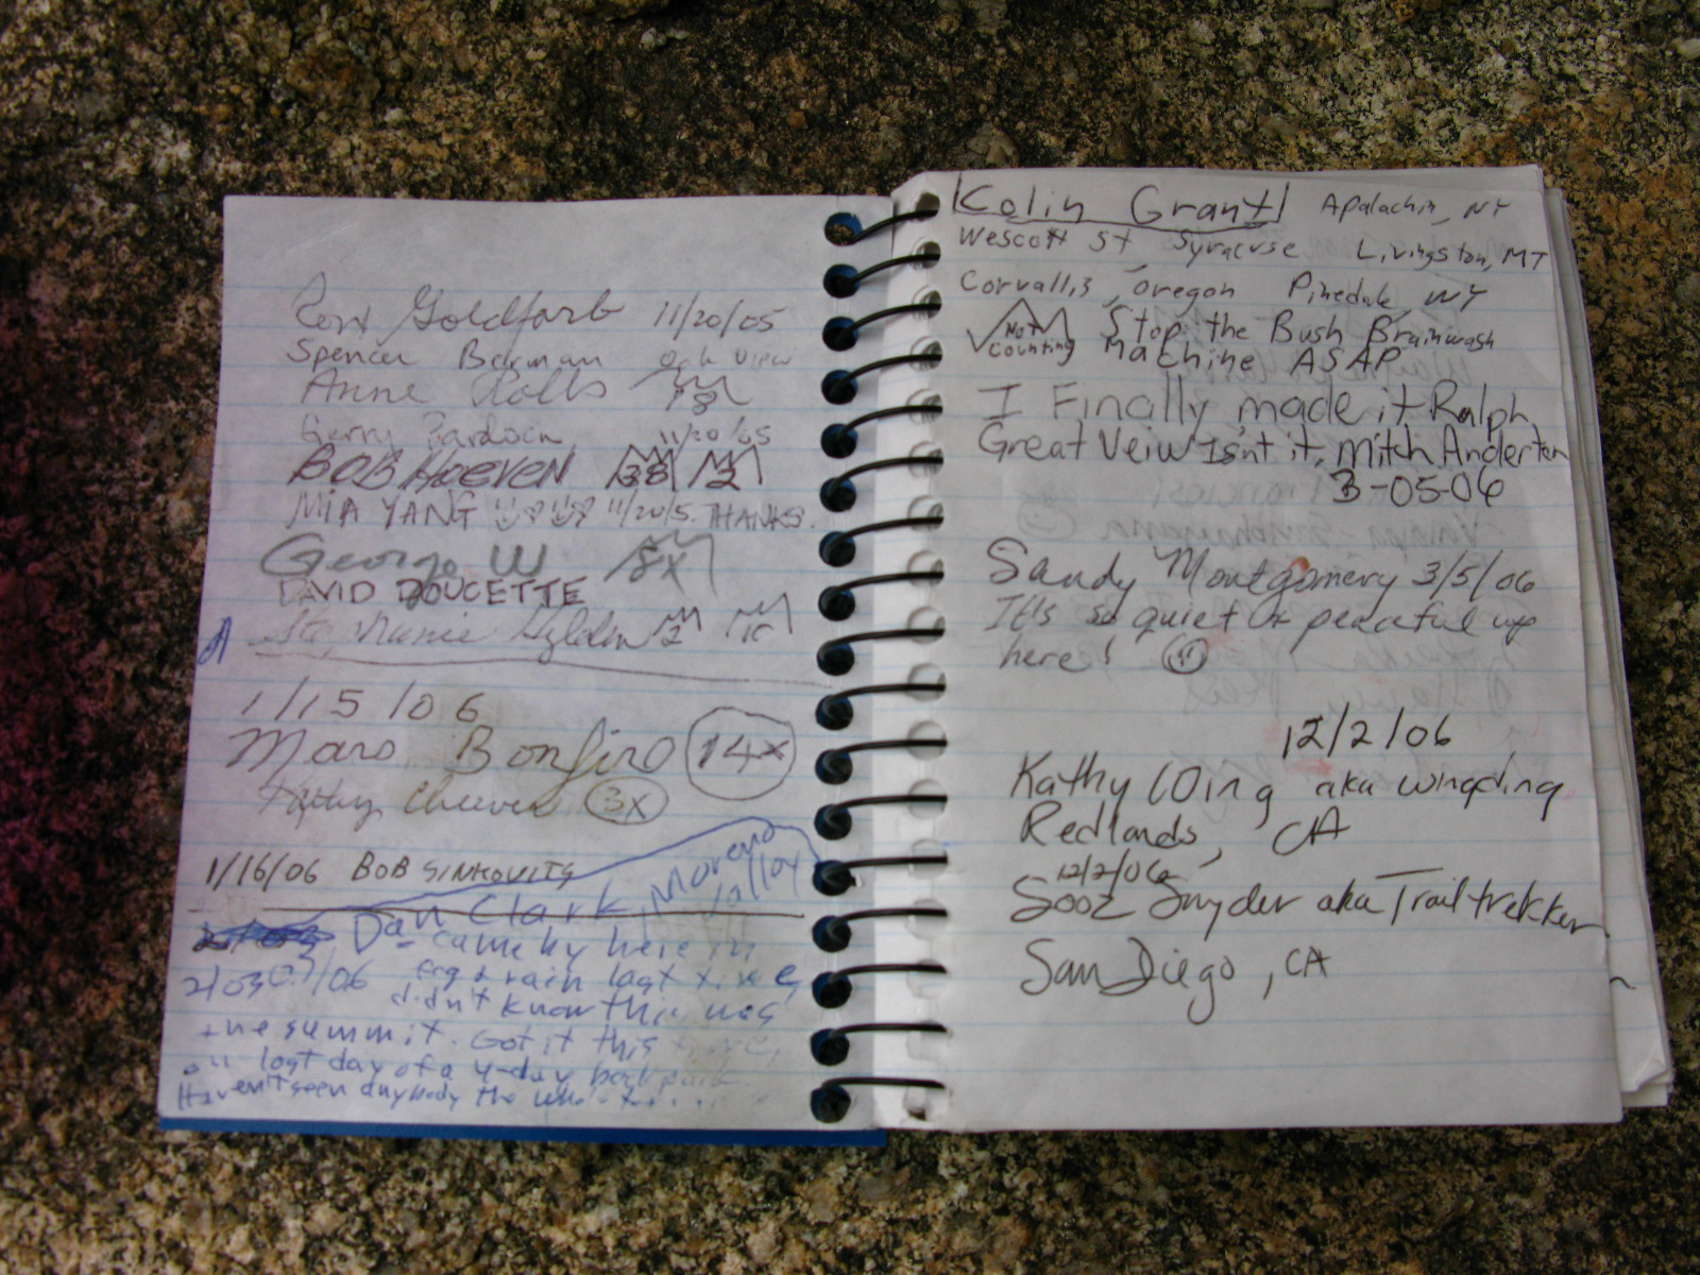 Goldfarb 11/20/05
Spencer Berman Oak View
Anne Rolls 18
Gerry 11/20/05
BOB HOEVEN 38 2
MIA YANG 11/20/5. THANKS.
George W 8X
DAVID DOUCETTE
2
1/15/06
Bonfiro 14x
Kathy 3x
1/16/06 BOB SINKOVITS
Dan Clark, Moreno Valley
- came by here in
2/03/06 fog & rain last time,
didn't know this was
the summit. Got it this time,
on last day of a 4-day backpack
Haven't seen anybody the whole
Colin Grant Apalachin, NY
Wescott St, Syracuse Livingston, MT
Corvallis, Oregon Pinedale, WY
Not Counting Stop the Bush Brainwash
Machine ASAP
I Finally made it Ralph,
Great Veiw Isn't it, Mitch Anderton
3-05-06
Sandy Montgomery 3/5/06
It's so quiet & peaceful up
here!
12/2/06
Kathy Wing aka wingding
Redlands, CA
12/2/06
Sooz Snyder aka Trailtrekker
San Diego, CA